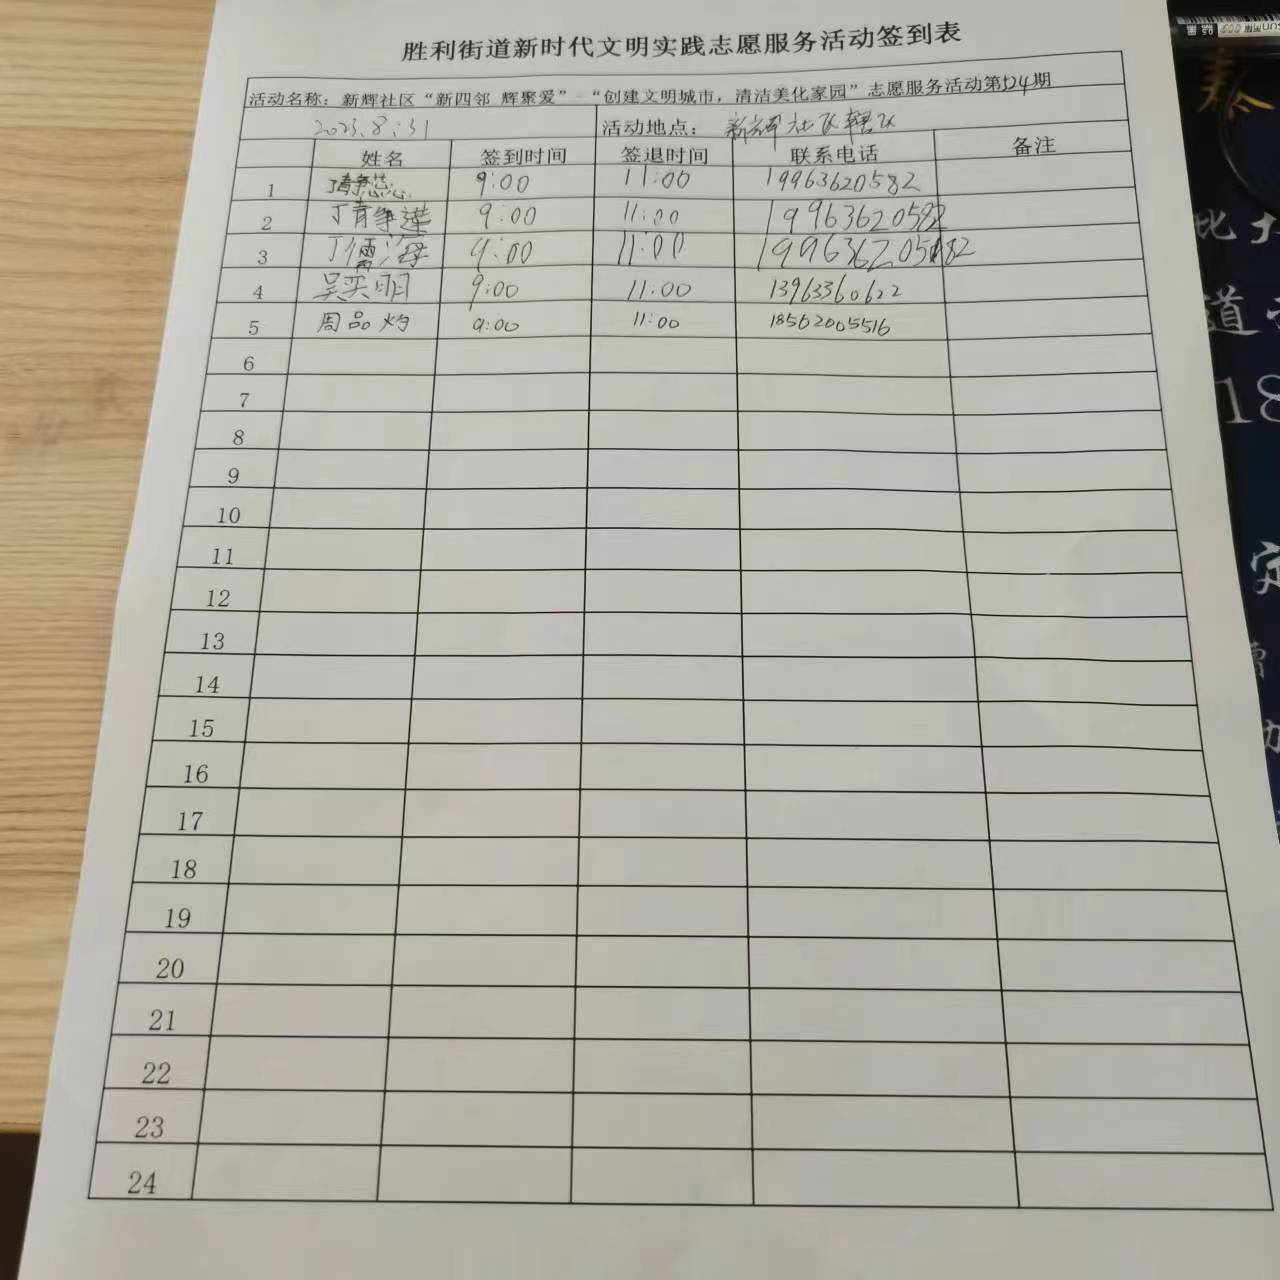 胜利街道新时代文明实践志愿服务活动签到表
活动名称：新辉社区“新四邻 辉聚爱”–“创建文明城市，清洁美化家园”志愿服务活动第524期
2023.8.31 活动地点： 新辉社区辖区
姓名 签到时间 签退时间 联系电话 备注
1 9:00 11:00 19963620582
2 9:00 11:00 19963620582
3 丁儒海 9:00 11:00 19963620582
4 吴奕明 9:00 11:00 13963360622
5 周品灼 9:00 11:00 18562005516
6
7
8
9
10
11
12
13
14
15
16
17
18
19
20
21
22
23
24
泰
道
18
定